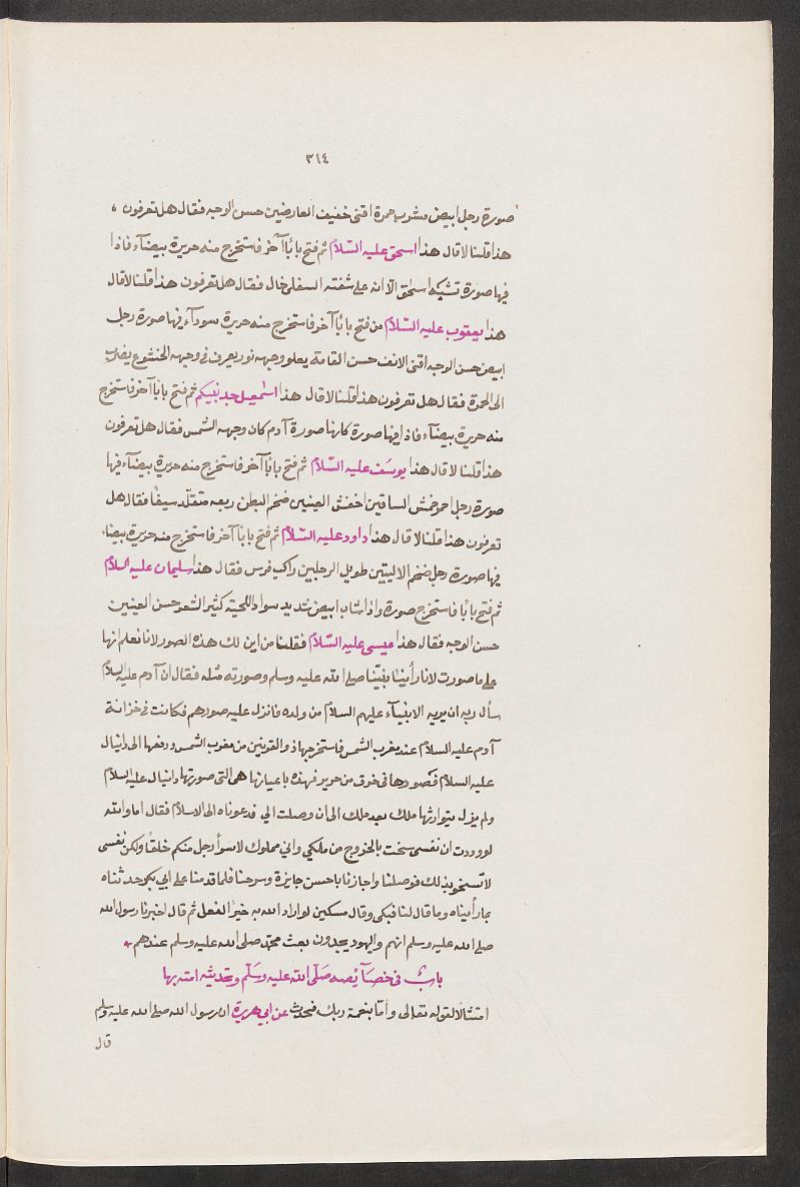 ٣١٤
صورة رجل ابيض مشرب حمرة اقنى خفيف العارضين حسن الوجه فقال هل تعرفون
هذا قلنا لا قال هذا اسحق عليه السّلام ثم فتح بابًا آخر فاستخرج منه حريرة بيضآء فاذا
فيها صورة تشبه اسحق الّا انه على شفته السفلى خال فقال هل تعرفون هذا قلنا لا قال
هذا يعقوب عليه السّلام من فتح بابًا آخر فاستخرج منه حريرة سودآء فيها صورة رجل
ابيض حسن الوجه اقنى الانف حسن القامة يعلو وجهه نور يعرف في وجهه الخشوع يضرب
الى الحمرة فقال هل تعرفون هذا قلنا لا قال هذا اسمٰعيل جد نبيكم ثم فتح بابًا آخر فاستخرج
منه حريرة بيضآء فاذا فيها صورة كانها صورة آدم كان وجهه الشمس فقال هل تعرفون
هذا قلنا لا قال هذا يوسَف عليه السّلام ثم فتح بابًا آخر فاستخرج منه حريرة بيضآء فيها
صورة رجل احمر خمش الساقين اخفش العينين ضخم البطن ربعه متقلّد سيفًا فقال هل
تعرفون هذا قلنا لا قال هذا داود عليه السّلام ثم فتح بابًا آخر فاستخرج منه حريرة بيضاء
فيها صورة رجل ضخم الاليتين طويل الرجلين راكب فرس فقال هذا سليمان عليه السلام
ثم فتح بابًا فاستخرج صورة واذا شاب ابيض شديد سواد اللحية كثير الشعر حسن العينين
حسن الوجه فقال هذا عيسى عليه السّلام فقلنا من اين لك هذه الصور لانا نعلم انها
على ما صورت لانا رأينا نبيّنا صلى الله عليه وسلم وصورته مثله فقال ان آدم عليه السلام
سأل ربه ان يريه الانبيآء عليهم السلام من ولده فانزل عليه صورهم فكانت في خزانة
آدم عليه السلام عند مغرب الشمس فاستخرجها ذو القرنين من مغرب الشمس ودفعها الى دانيال
عليه السلام فصورها في خرق من حرير فهذه باعيانها هى التى صورتها دانيال عليه السلام
ولم يزل يتوارثها ملك بعد ملك الى ان وصلت الي فدعوناه الى الاسلام فقال اما والله
لوددت ان نفسى سخت بالخروج من ملكي واني مملوك لاسوأ رجل منكم خلقًا ولكن نفسى
لا تسخو بذلك فوصلنا واجازنا باحسن جايزة وسرحنا فلما قدمنا على ابي بكر حدثناه
بما رأيناه وما قال لنا فبكى وقال مسكين لو اراد الله به خيرًا لفعل ثم قال اخبرنا رسول الله
صلى الله عليه وسلم انهم واليهود يجدون بعث محمّد صلى الله عليه وسلم عندهم
باب في خصآئصه صَلّى الله عليه وسَلّم وتحديثه امته بها
امتثالا لقوله تعالى وامّا بنعمة ربك فحدث عن ابي هريرة ان رسول الله صلى الله عليه وسلم
قال